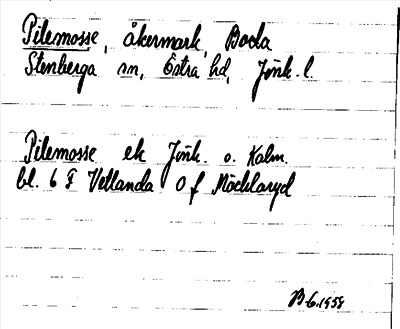 Pilemosse, åkermark, Boda
Stenberga sn, Östra hd, Jönk. l.
Pilemosse ek Jönk. o. Kalm.
bl. 6 F Vetlanda O f Möcklaryd
B-G.1958